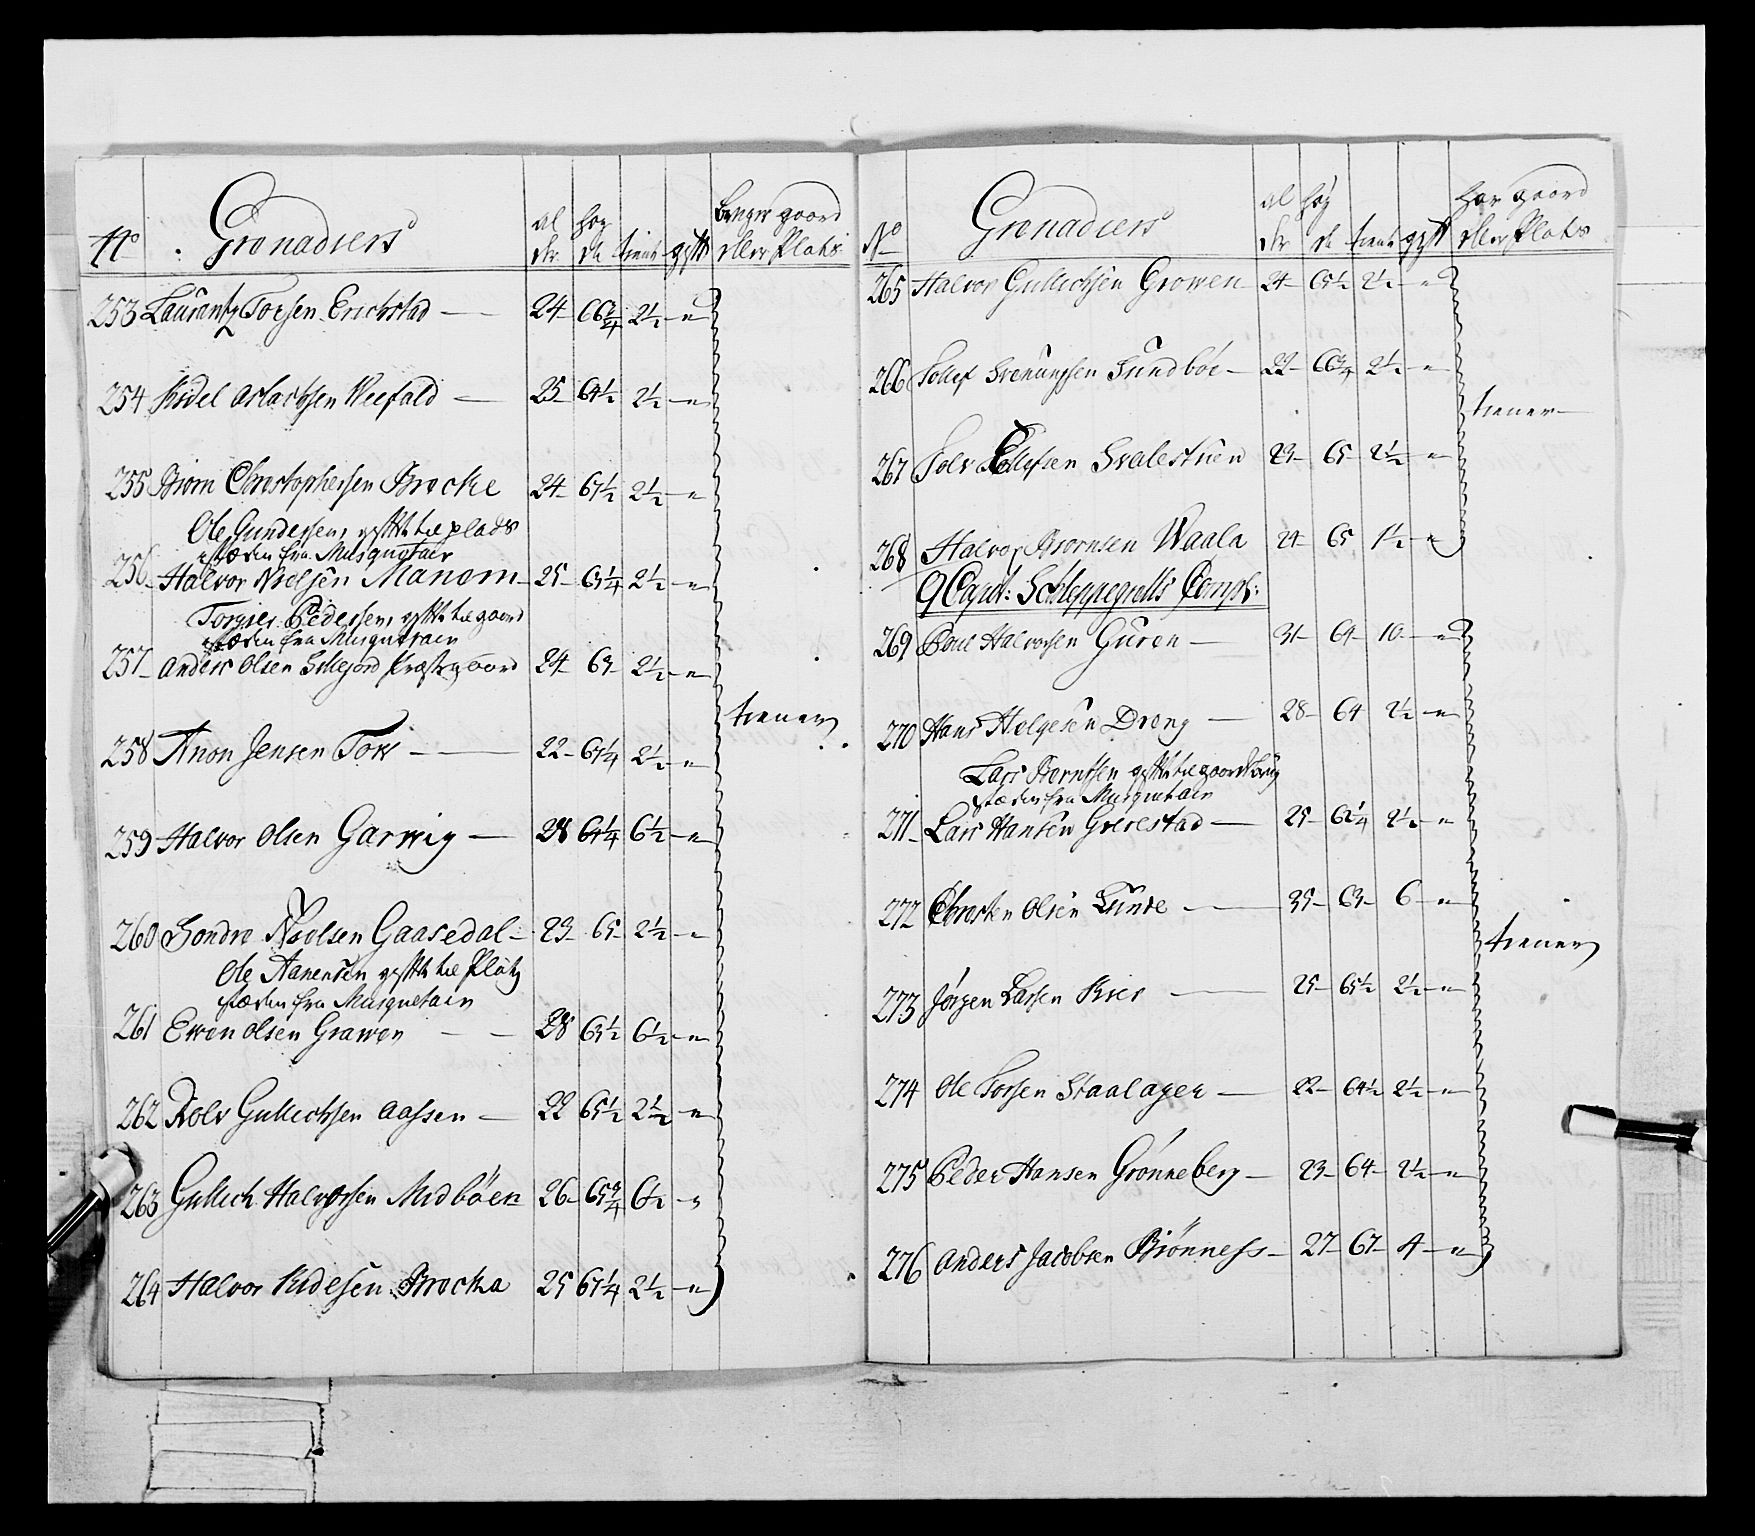 No Grenadiers al der høy de tient gift bruger gaard eller Plads
253 Laurentz Torsen Erichstad — 24 — 66 3/4 2 1/2 — "
254 Kidel Aslachsen Weefald — 25 — 64 1/2 2 1/2 — "
255 Biørn Christophersen Brocke 24 — 67 1/2 2 1/2 — "
Ole Gundersen, gift til plads
istæden fra Musquetair
256 Halvor Nielsen Manom — 25 — 63 1/4 2 1/2 — "
Torgier Pedersen, gift til gaard
istæden fra Musquetair
257 Anders Olsen Sillejord Præstegaard 24 — 63 — 2 1/2 — "
tiener
258 Anon Jensen Tors — 22 — 67 1/4 2 1/2 — "
259 Halvor Olsen Garwig — 28 64 1/4 6 1/2 — "
260 Sondre Noelsen Gaasedal — 23 — 65 — 2 1/2 — "
Ole Aanensen gift til Platz
istæden fra Musquetair
261 Ewen Olsen Grawen — 28 63 1/2 6 1/2 — "
262 Rolv Gullichsen Aassen — 22 65 1/2 2 1/2 — "
263 Gullich Halvorsen Midbøen 26 — 65 3/4 6 1/2 — "
264 Halvor Kidelsen Brocka 25 67 1/4 2 1/2 — "
No Grenadiers al der høy de tient gift har gaard eller Plads
265 Halvor Gullichsen Growen 24 — 65 1/2 2 1/2 — "
266 Tollef Svenungsen Sundbøe — 22 — 66 3/4 2 1/2 — "
tiener —
267 Solv Tollefsen Svalestuen 23 — 65 — 2 1/2 — "
268 Halvor Biørnsen Waala 24 — 65 1 1/2 — "
9 Capit: Schleppegrells Comp:
269 Poul Halvorsen Guren — 31 — 64 — 10 — "
270 Hans Helgesen Dreng — 28 — 64 2 1/2 — "
Lars Berntsen gift til gaard brug
istæden fra Musquetair
271 Lars Hansen Gverestad — 25 — 62 1/4 2 1/2 — "
272 Christen Olsen Lunde — 35 — 63 — 6 — "
tiener
273 Jørgen Larsen Kier — 25 — 65 1/2 2 1/2 — "
274 Ole Torsen Staalager — 22 — 64 1/2 2 1/2 — "
275 Peder Hansen Grønneberg — 23 — 64 — 2 1/2 — "
276 Anders Jacobsen Biønness — 27 — 67 — 4 — "